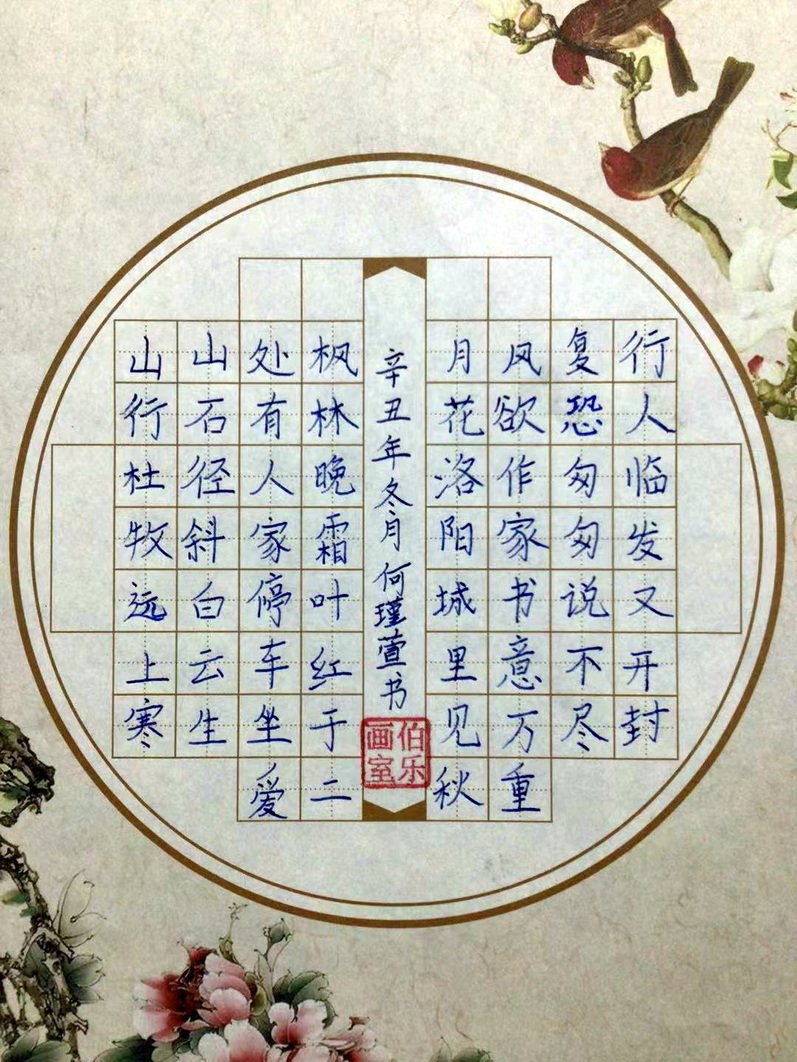 山行杜牧远上寒
山石径斜白云生
处有人家停车坐爱
枫林晚霜叶红于二
辛丑年冬月何瑾萱书
伯乐画室
月花洛阳城里见秋
风欲作家书意万重
复恐匆匆说不尽
行人临发又开封